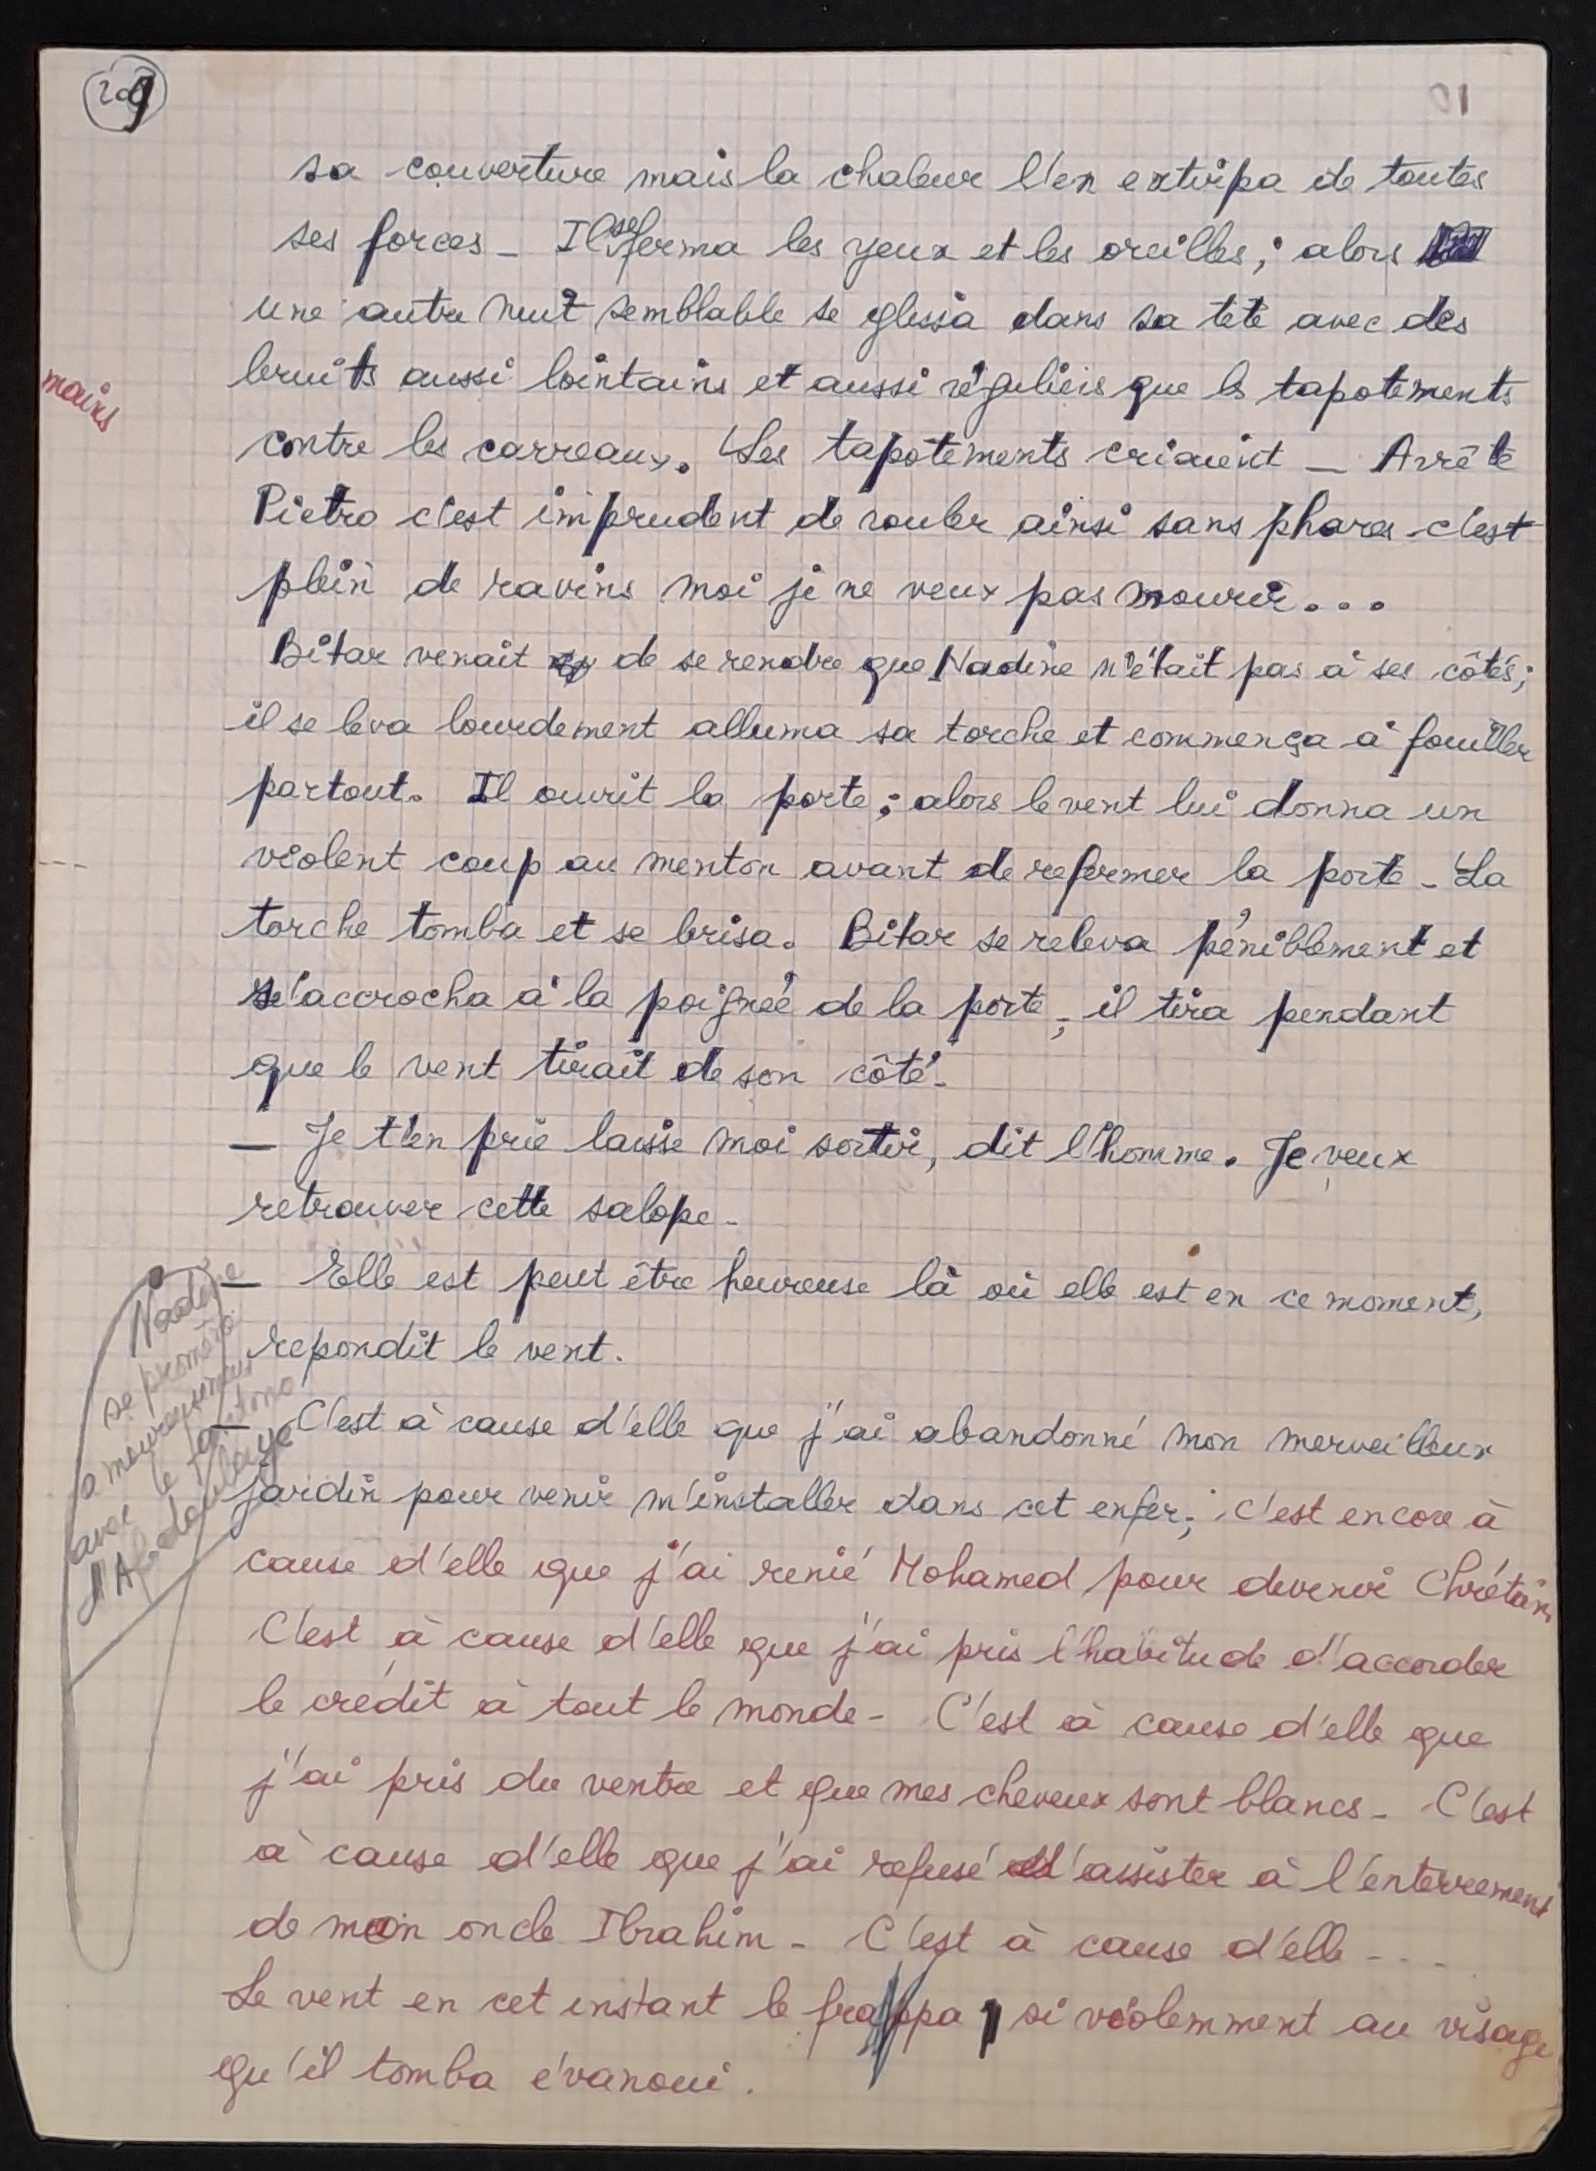 209
sa couverture mais la chaleur l'en extirpa de toutes
ses forces _ Il se ferma les yeux et les oreilles ; alors
une autre nuit semblable se glissa dans sa tête avec des
bruits aussi lointains et aussi réguliers que les tapotements
moins
contre les carreaux. Les tapotements criaient _ Arrête
Pietro c'est imprudent de rouler ainsi sans phares c'est
plein de ravins moi je ne veux pas mourir...
Bitar venait de se rendre que Nadine n'était pas à ses côtés ;
il se leva lourdement alluma sa torche et commença à fouiller
partout. Il ouvrit la porte ; alors le vent lui donna un
violent coup au menton avant de refermer la porte _ La
torche tomba et se brisa. Bitar se releva péniblement et
s'accrocha à la poignée de la porte ; il tira pendant
que le vent tirait de son côté _
_ Je t'en prie laisse moi sortir, dit l'homme. Je veux
retrouver cette salope _
_ Elle est peut être heureuse là où elle est en ce moment,
repondit le vent.
_ C'est à cause d'elle que j'ai abandonné mon merveilleux
jardin pour venir m'installer dans cet enfer ; c'est encore à
cause d'elle que j'ai renié Mohamed pour devenir Chrétien.
C'est à cause d'elle que j'ai pris l'habitude d'accorder
le crédit à tout le monde _ C'est à cause d'elle que
j'ai pris du ventre et que mes cheveux sont blancs _ C'est
à cause d'elle que j'ai refusé d'assister à l'enterrement
de mon oncle Ibrahim _ C'est à cause d'elle _ ...
Le vent en cet instant le frappa si violemment au visage
qu'il tomba évanoui.
Nadine
se promène
amoureusement
avec le fantôme
d'Abdoulaye